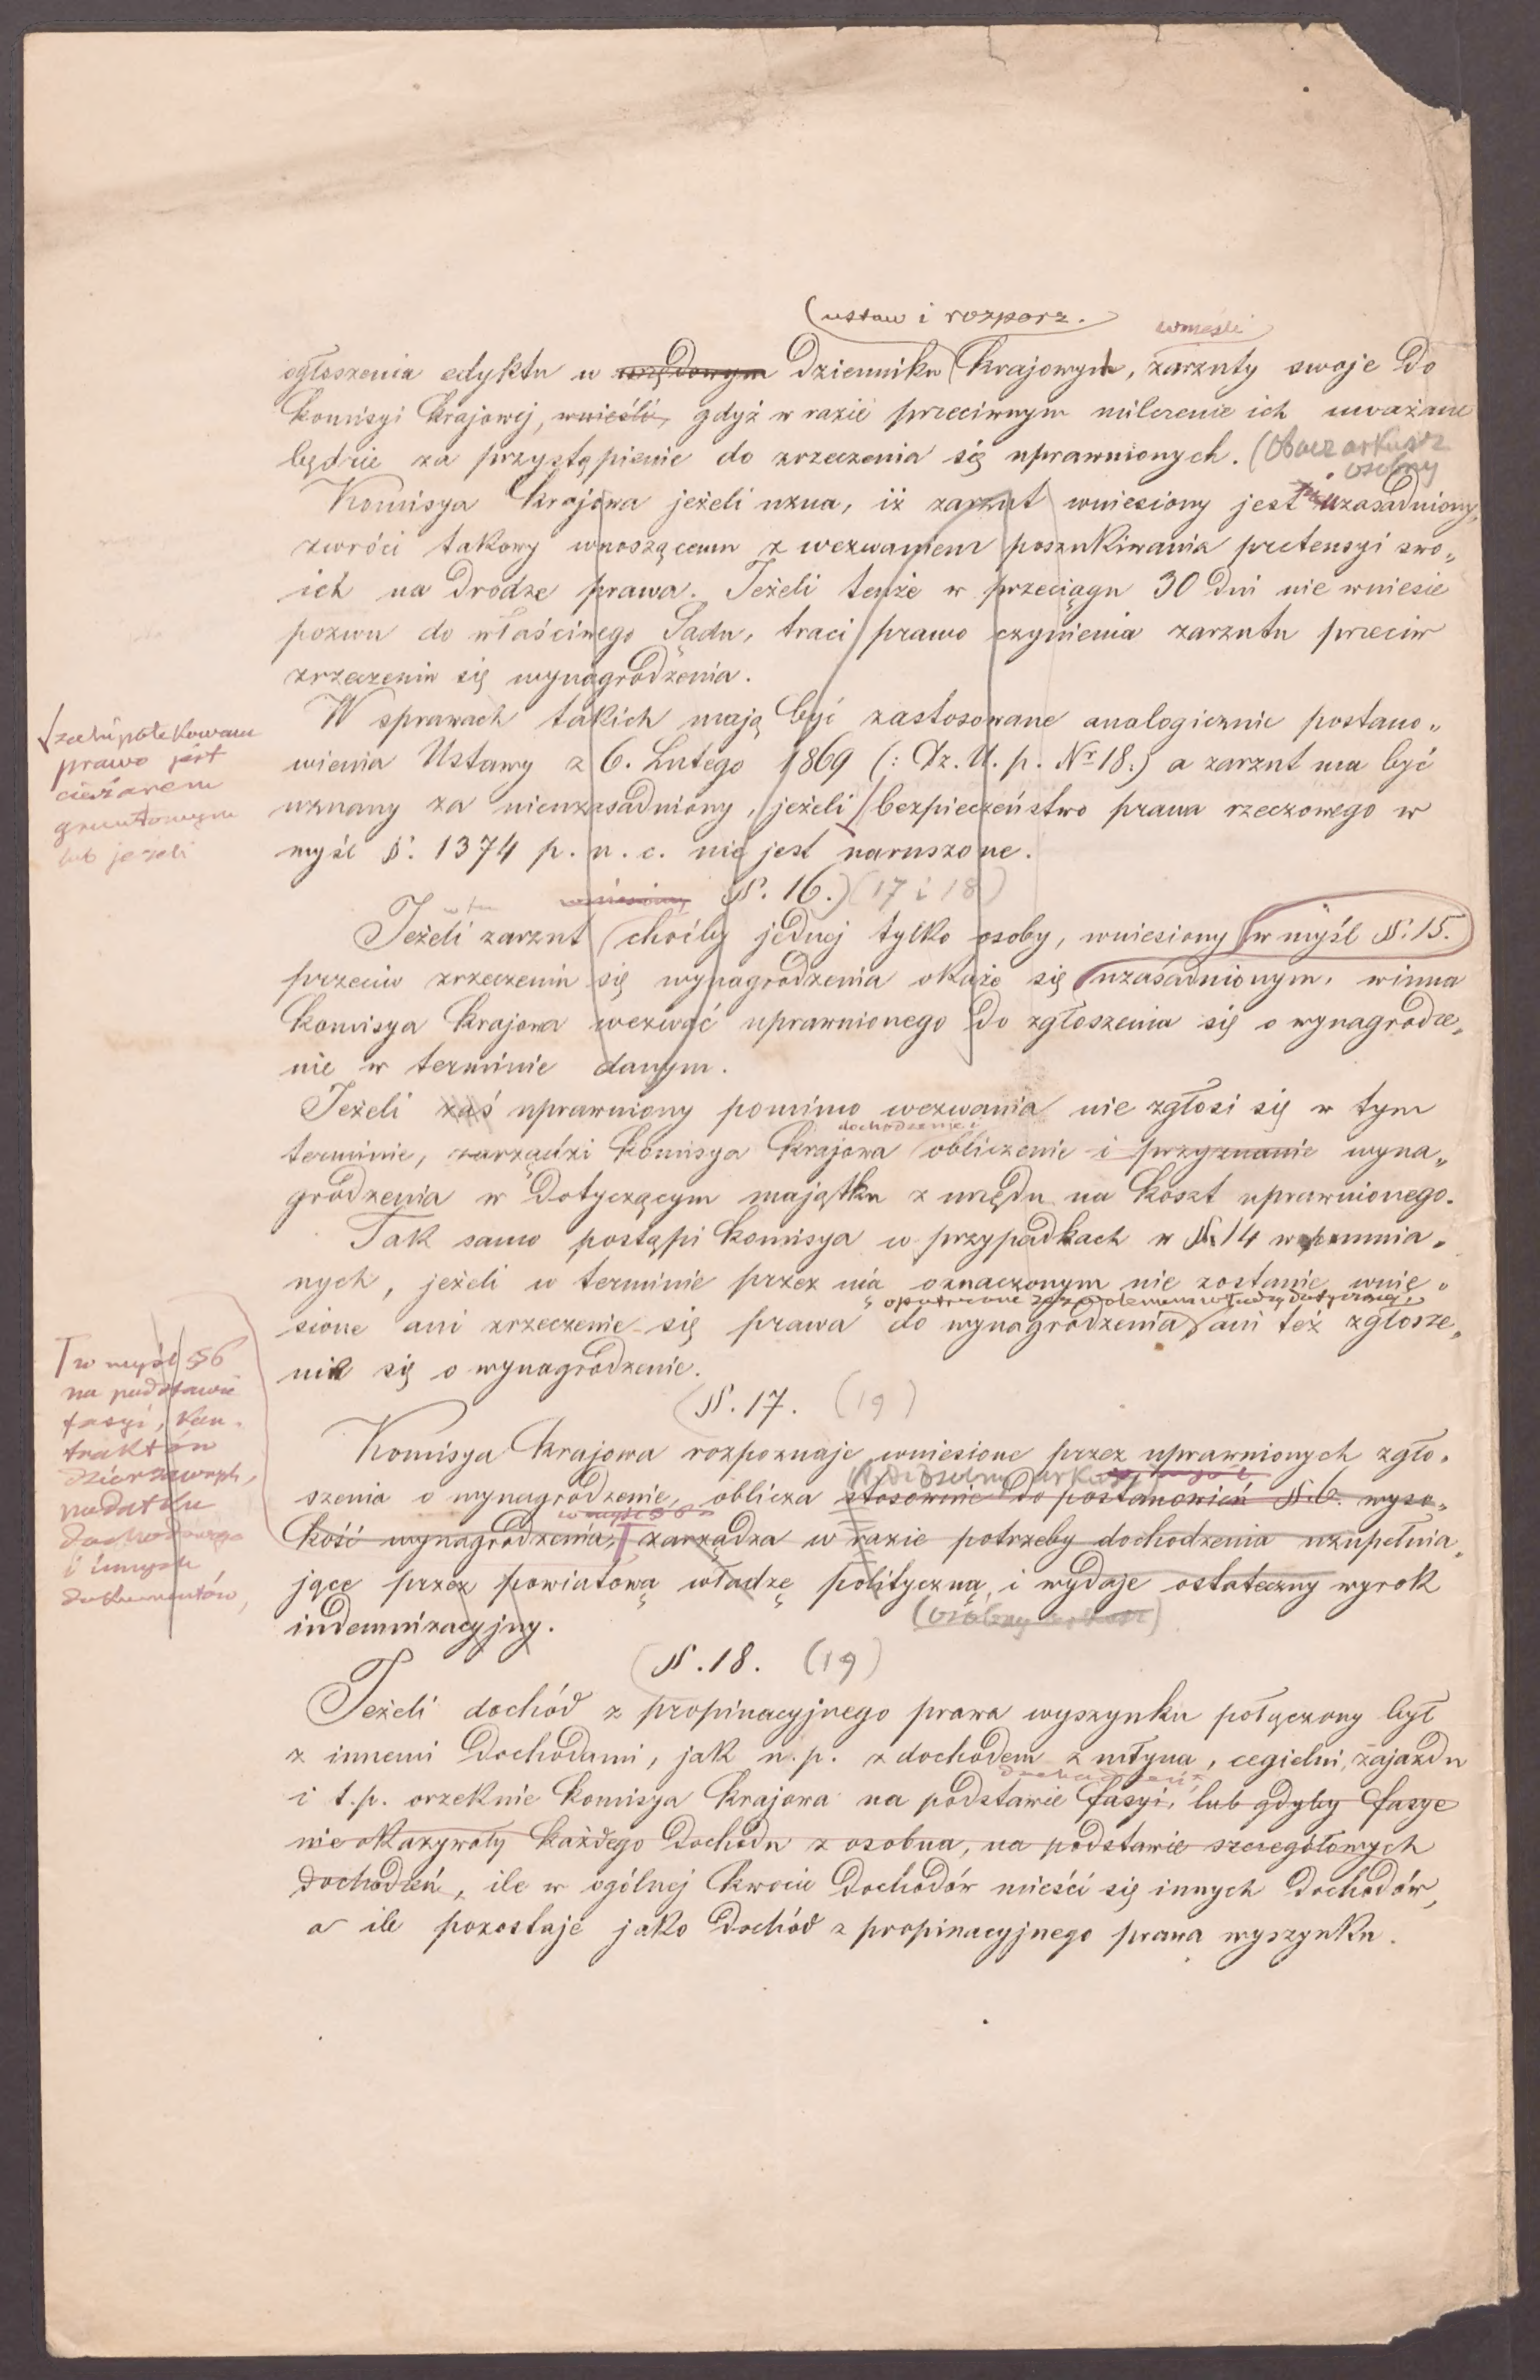 (ustaw i rozporz.
wnieśli
ogłoszenia edyktu w urzędowym Dzienniku krajowych, zarzuty swoje do
komisyi krajowej, wnieśli, gdyż w razie przeciwnym milczenie ich uważane
będzie za przystąpienie do zrzeczenia się uprawnionych. (Obacz arkusz
osobny
Komisya krajowa jeżeli uzna, iż zarzut wniesiony jest uzasadniony,
zwróci takowy wnoszącemu z wezwaniem poszukiwania pretensyi swo„
ich na drodze prawa. Jeżeli tenże w przeciągu 30 dni nie wniesie
pozwu do właściwego Sądu, traci prawo czynienia zarzutu przeciw
zrzeczeniu się wynagrodzenia.
W sprawach takich mają być zastosowane analogicznie postano„
wienia Ustawy z 6. Lutego 1869 (: Dz. U. p. Nr 18.) a zarzut ma być
uznany za nieuzasadniony, jeżeli bezpieczeństwo prawa rzeczowego w
myśl §. 1374 p. u. c. nie jest naruszone.
zahipotekowane
prawo jest
ciężarem
gruntowym
lub jeżeli
wniesiony §. 16.) (17 i 18)
Jeżeli zarzut choćby jednej tylko osoby, wniesiony w myśl §. 15.
przeciw zrzeczeniu się wynagrodzenia okaże się uzasadnionym, winna
komisya krajowa wezwać uprawnionego do zgłoszenia się o wynagrodze„
nie w terminie danym.
Jeżeli zaś uprawniony pomimo wezwania nie zgłosi się w tym
dochodzenie i
terminie, zarządzi komisya krajowa obliczenie i przyznanie wyna„
grodzenia w dotyczącym majątku z urzędu na koszt uprawnionego.
Tak samo postąpi komisya w przypadkach w §. 14 wspomnia„
nych, jeżeli w terminie przez nią oznaczonym nie zostanie wnie„
opatrzone zezwoleniem władzy dotyczącej,
sione ani zrzeczenie się prawa do wynagrodzenia, ani też zgłosze„
nie się o wynagrodzenie.
w myśl §6
na podstawie
fasyi, kon„
traktów
dzierżawnych,
podatku
dochodowego
i innych
dokumentów,
(§. 17. (19)
Komisya krajowa rozpoznaje wniesione przez uprawnionych zgło„
szenia o wynagrodzenie, oblicza stosownie do postanowień §. 6. wyso„
w myśl §6
kość wynagrodzenia, zarządza w razie potrzeby dochodzenia uzupełnia„
jące przez powiatową władzę polityczną i wydaje ostateczny wyrok
indemnizacyjny.
(osobny arkusz)
(§. 18. (19)
Jeżeli dochód z propinacyjnego prawa wyszynku połączony był
z innemi dochodami, jak n. p. z dochodem z młyna, cegielni, zajazdu
dochodzeń
i t. p. orzeknie komisya krajowa na podstawie fasyi, lub gdyby fasye
nie okazywały każdego dochodu z osobna, na podstawie szczegółowych
dochodzeń, ile w ogólnej kwocie dochodów mieści się innych dochodów,
a ile pozostaje jako dochód z propinacyjnego prawa wyszynku.